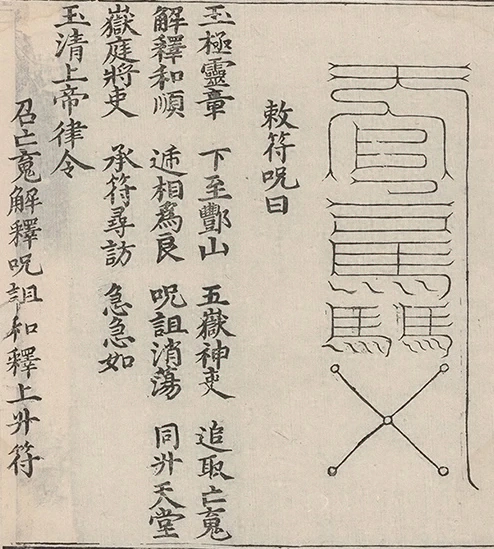 敕符呪曰
玉極靈章　下至酆山　五嶽神吏　追取亡䰟
解釋和順　遞相爲良　呪詛消蕩　同升天堂
嶽庭將吏　承符尋訪　急急如
玉清上帝律令
召亡䰟解釋呪詛和釋上升符